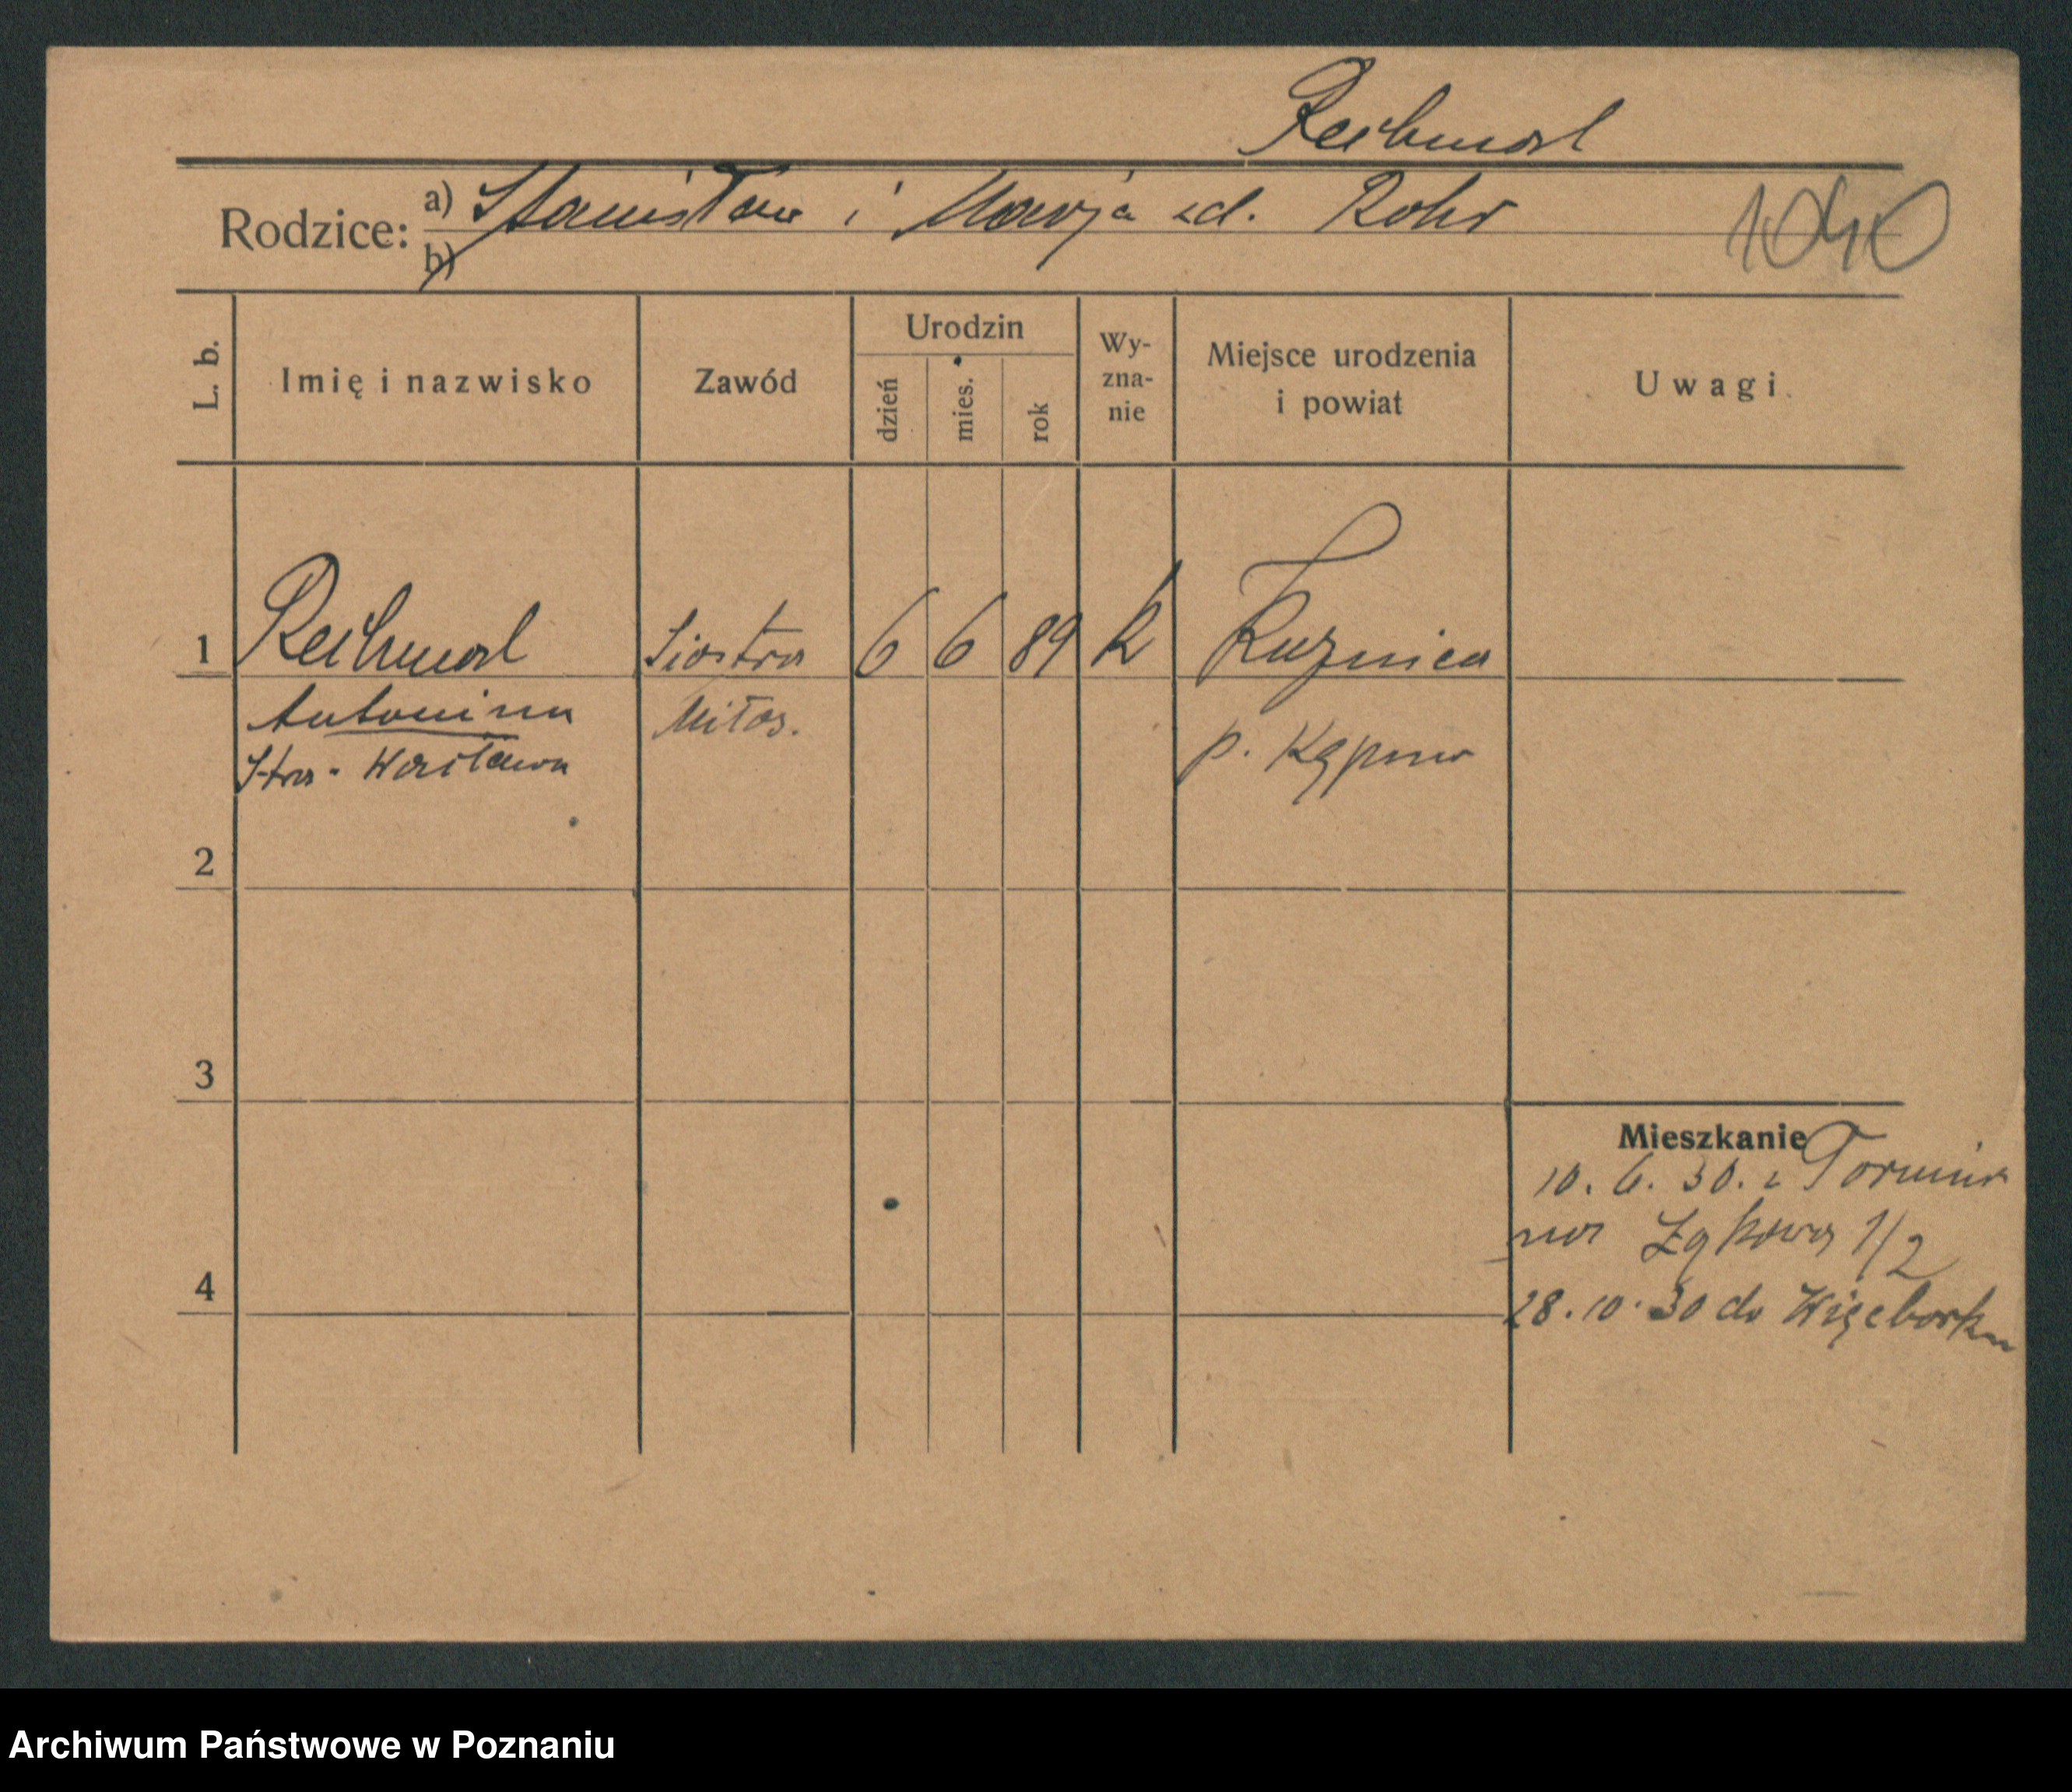 Reichwal
Rodzice: a) Stanisław i Marja zd. Rohr
b)
1040
L. b. Imię i nazwisko Zawód Urodzin dzień mies. rok Wy-zna-nie Miejsce urodzenia i powiat Uwagi.
1 Siostra 6 6 89 k Kuznica
Antonina Miłos. p. Kępno
Wacława
2
3
4
Mieszkanie
10. 6. 30. z Torunia
na Łąkowa 1/2
28. 10. 30 do Więcborka
Archiwum Państwowe w Poznaniu